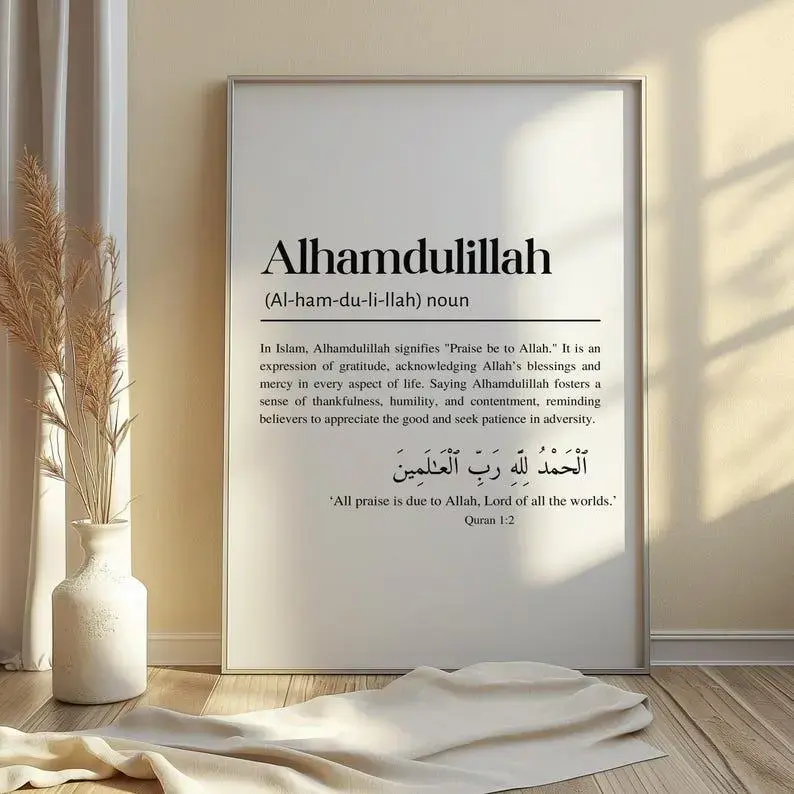 Alhamdulillah
(Al-ham-du-li-llah) noun
In Islam, Alhamdulillah signifies "Praise be to Allah." It is an
expression of gratitude, acknowledging Allah's blessings and
mercy in every aspect of life. Saying Alhamdulillah fosters a
sense of thankfulness, humility, and contentment, reminding
believers to appreciate the good and seek patience in adversity.
ٱلْحَمْدُ لِلَّهِ رَبِّ ٱلْعَـٰلَمِينَ
‘All praise is due to Allah, Lord of all the worlds.’
Quran 1:2